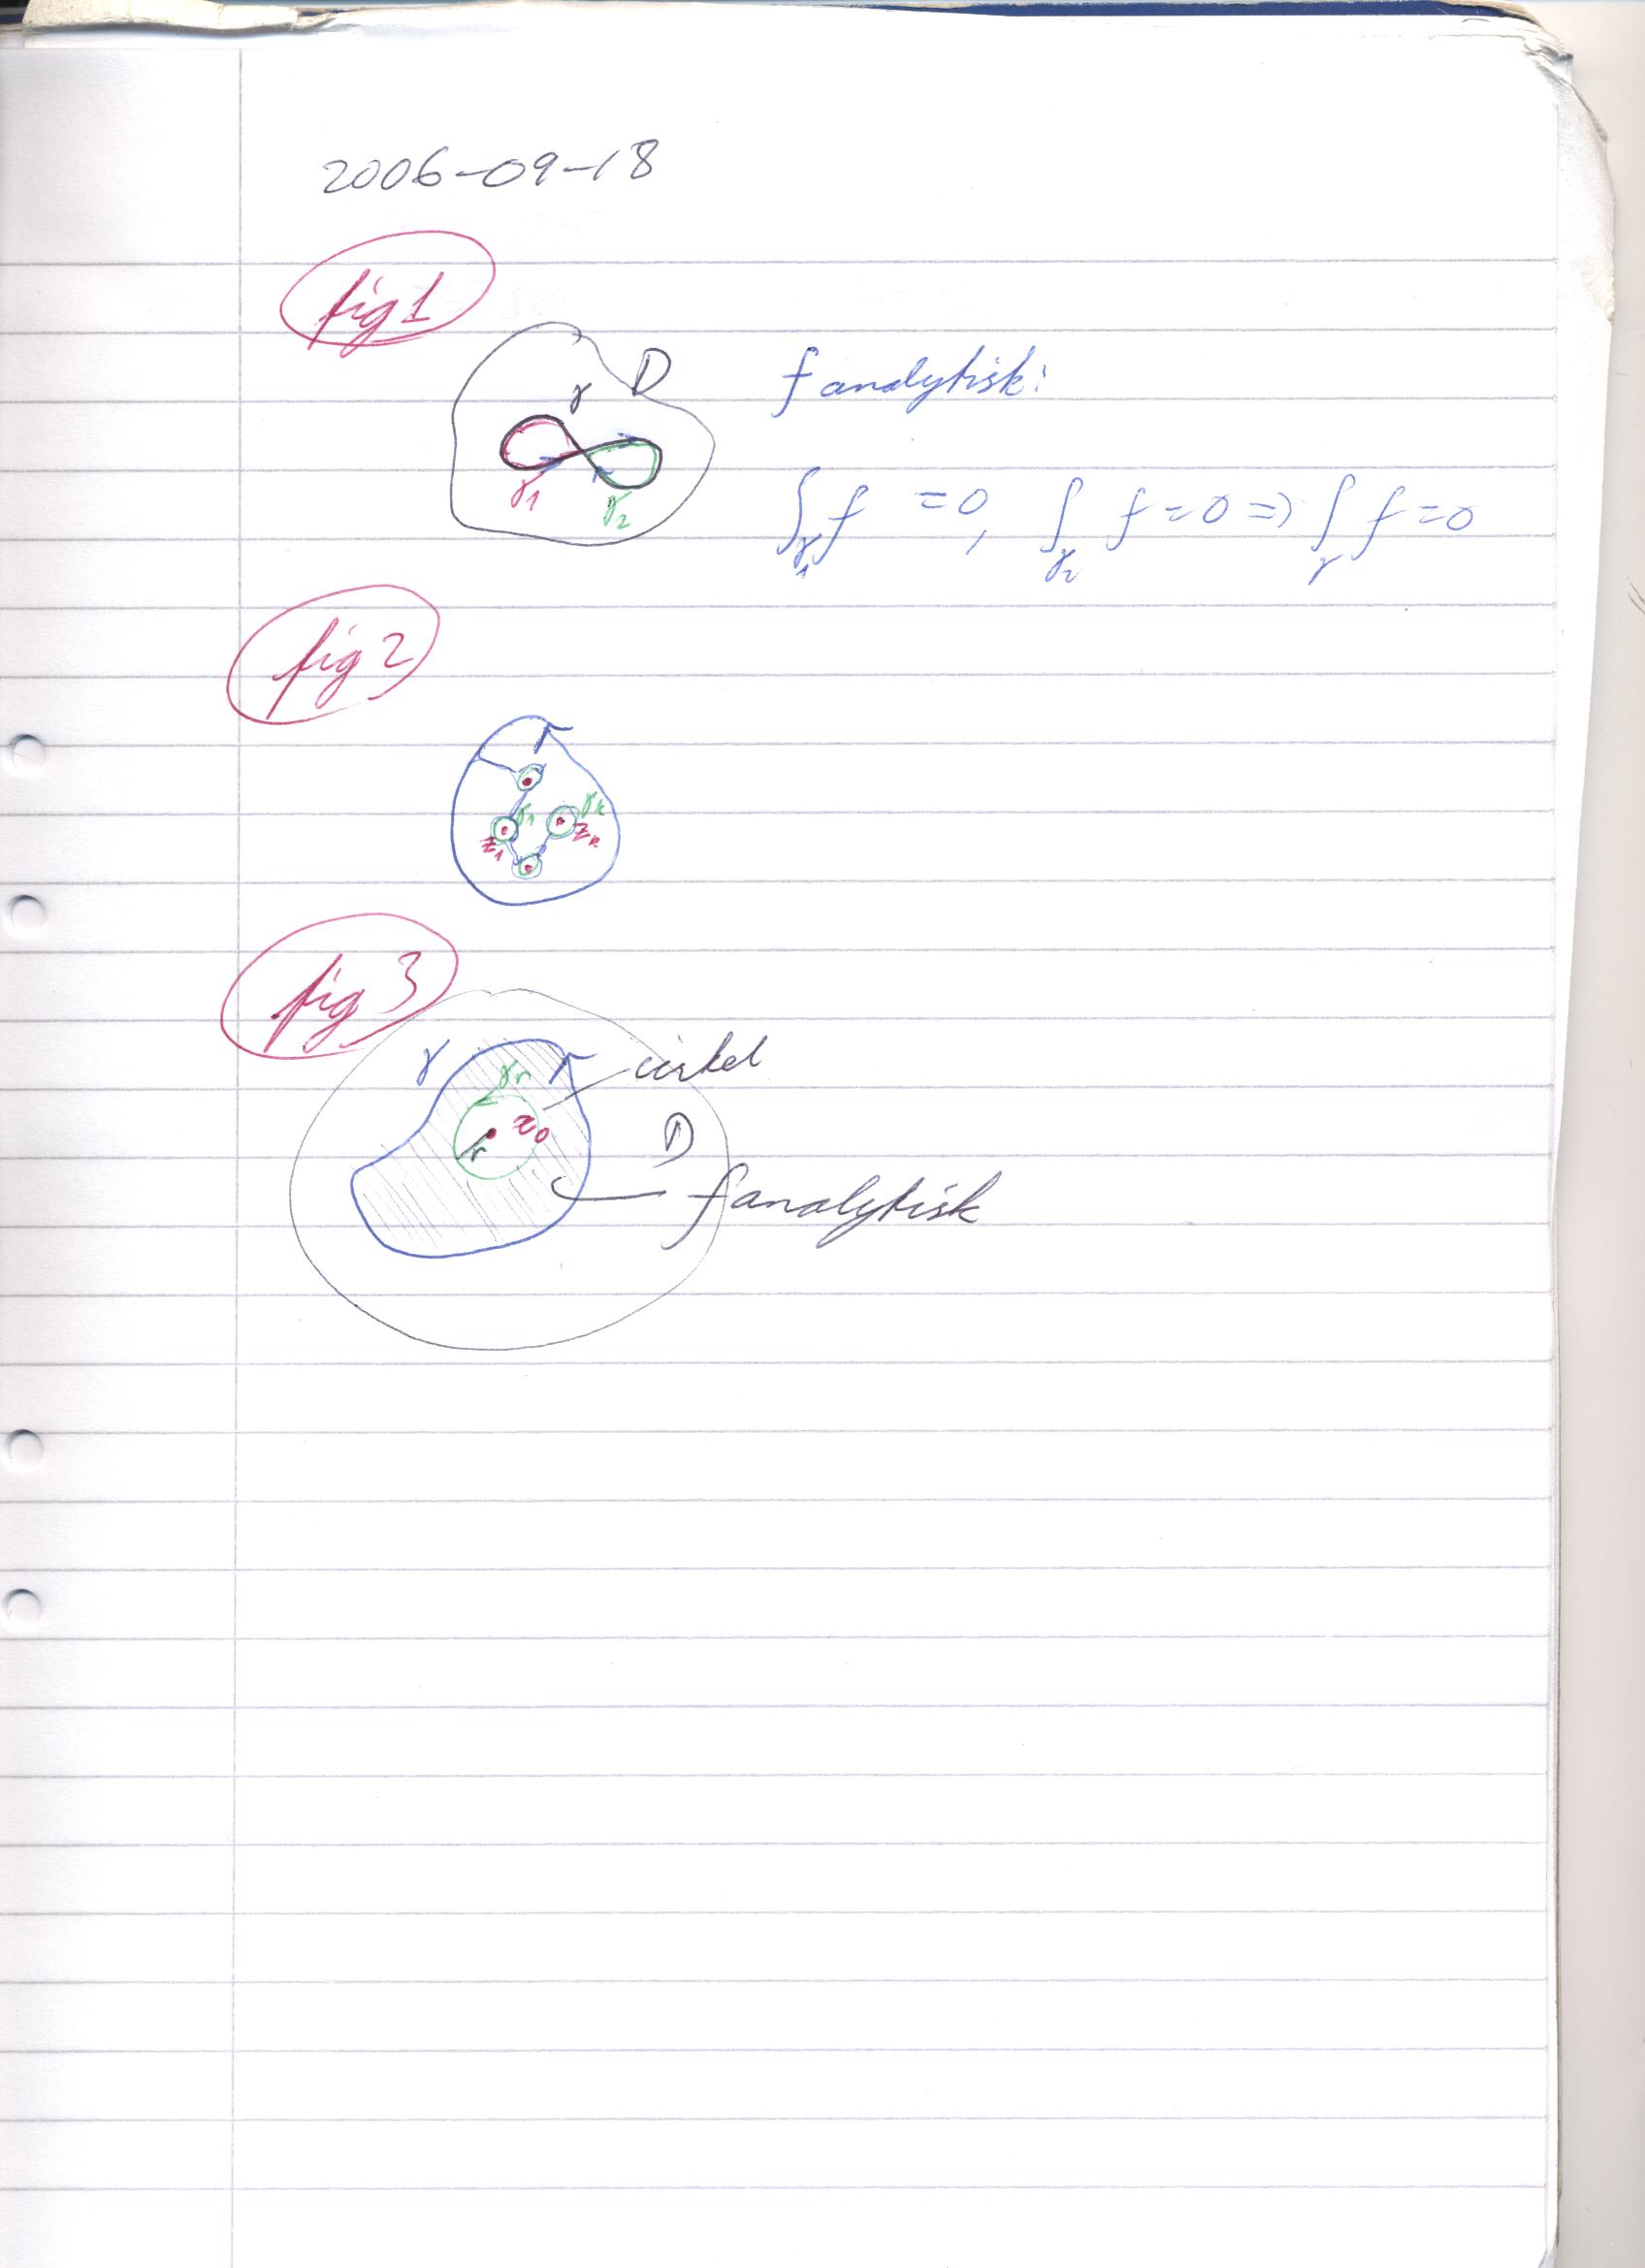 2006-09-18
fig 1
γ D
f analytisk:
γ₁ γ₂
∫γ₁ f = 0, ∫γ₂ f = 0 => ∫γ f = 0
fig 2
γ₁ γₖ
z₁ zₖ
fig 3
γ γr cirkel
z₀ D
r
f analytisk